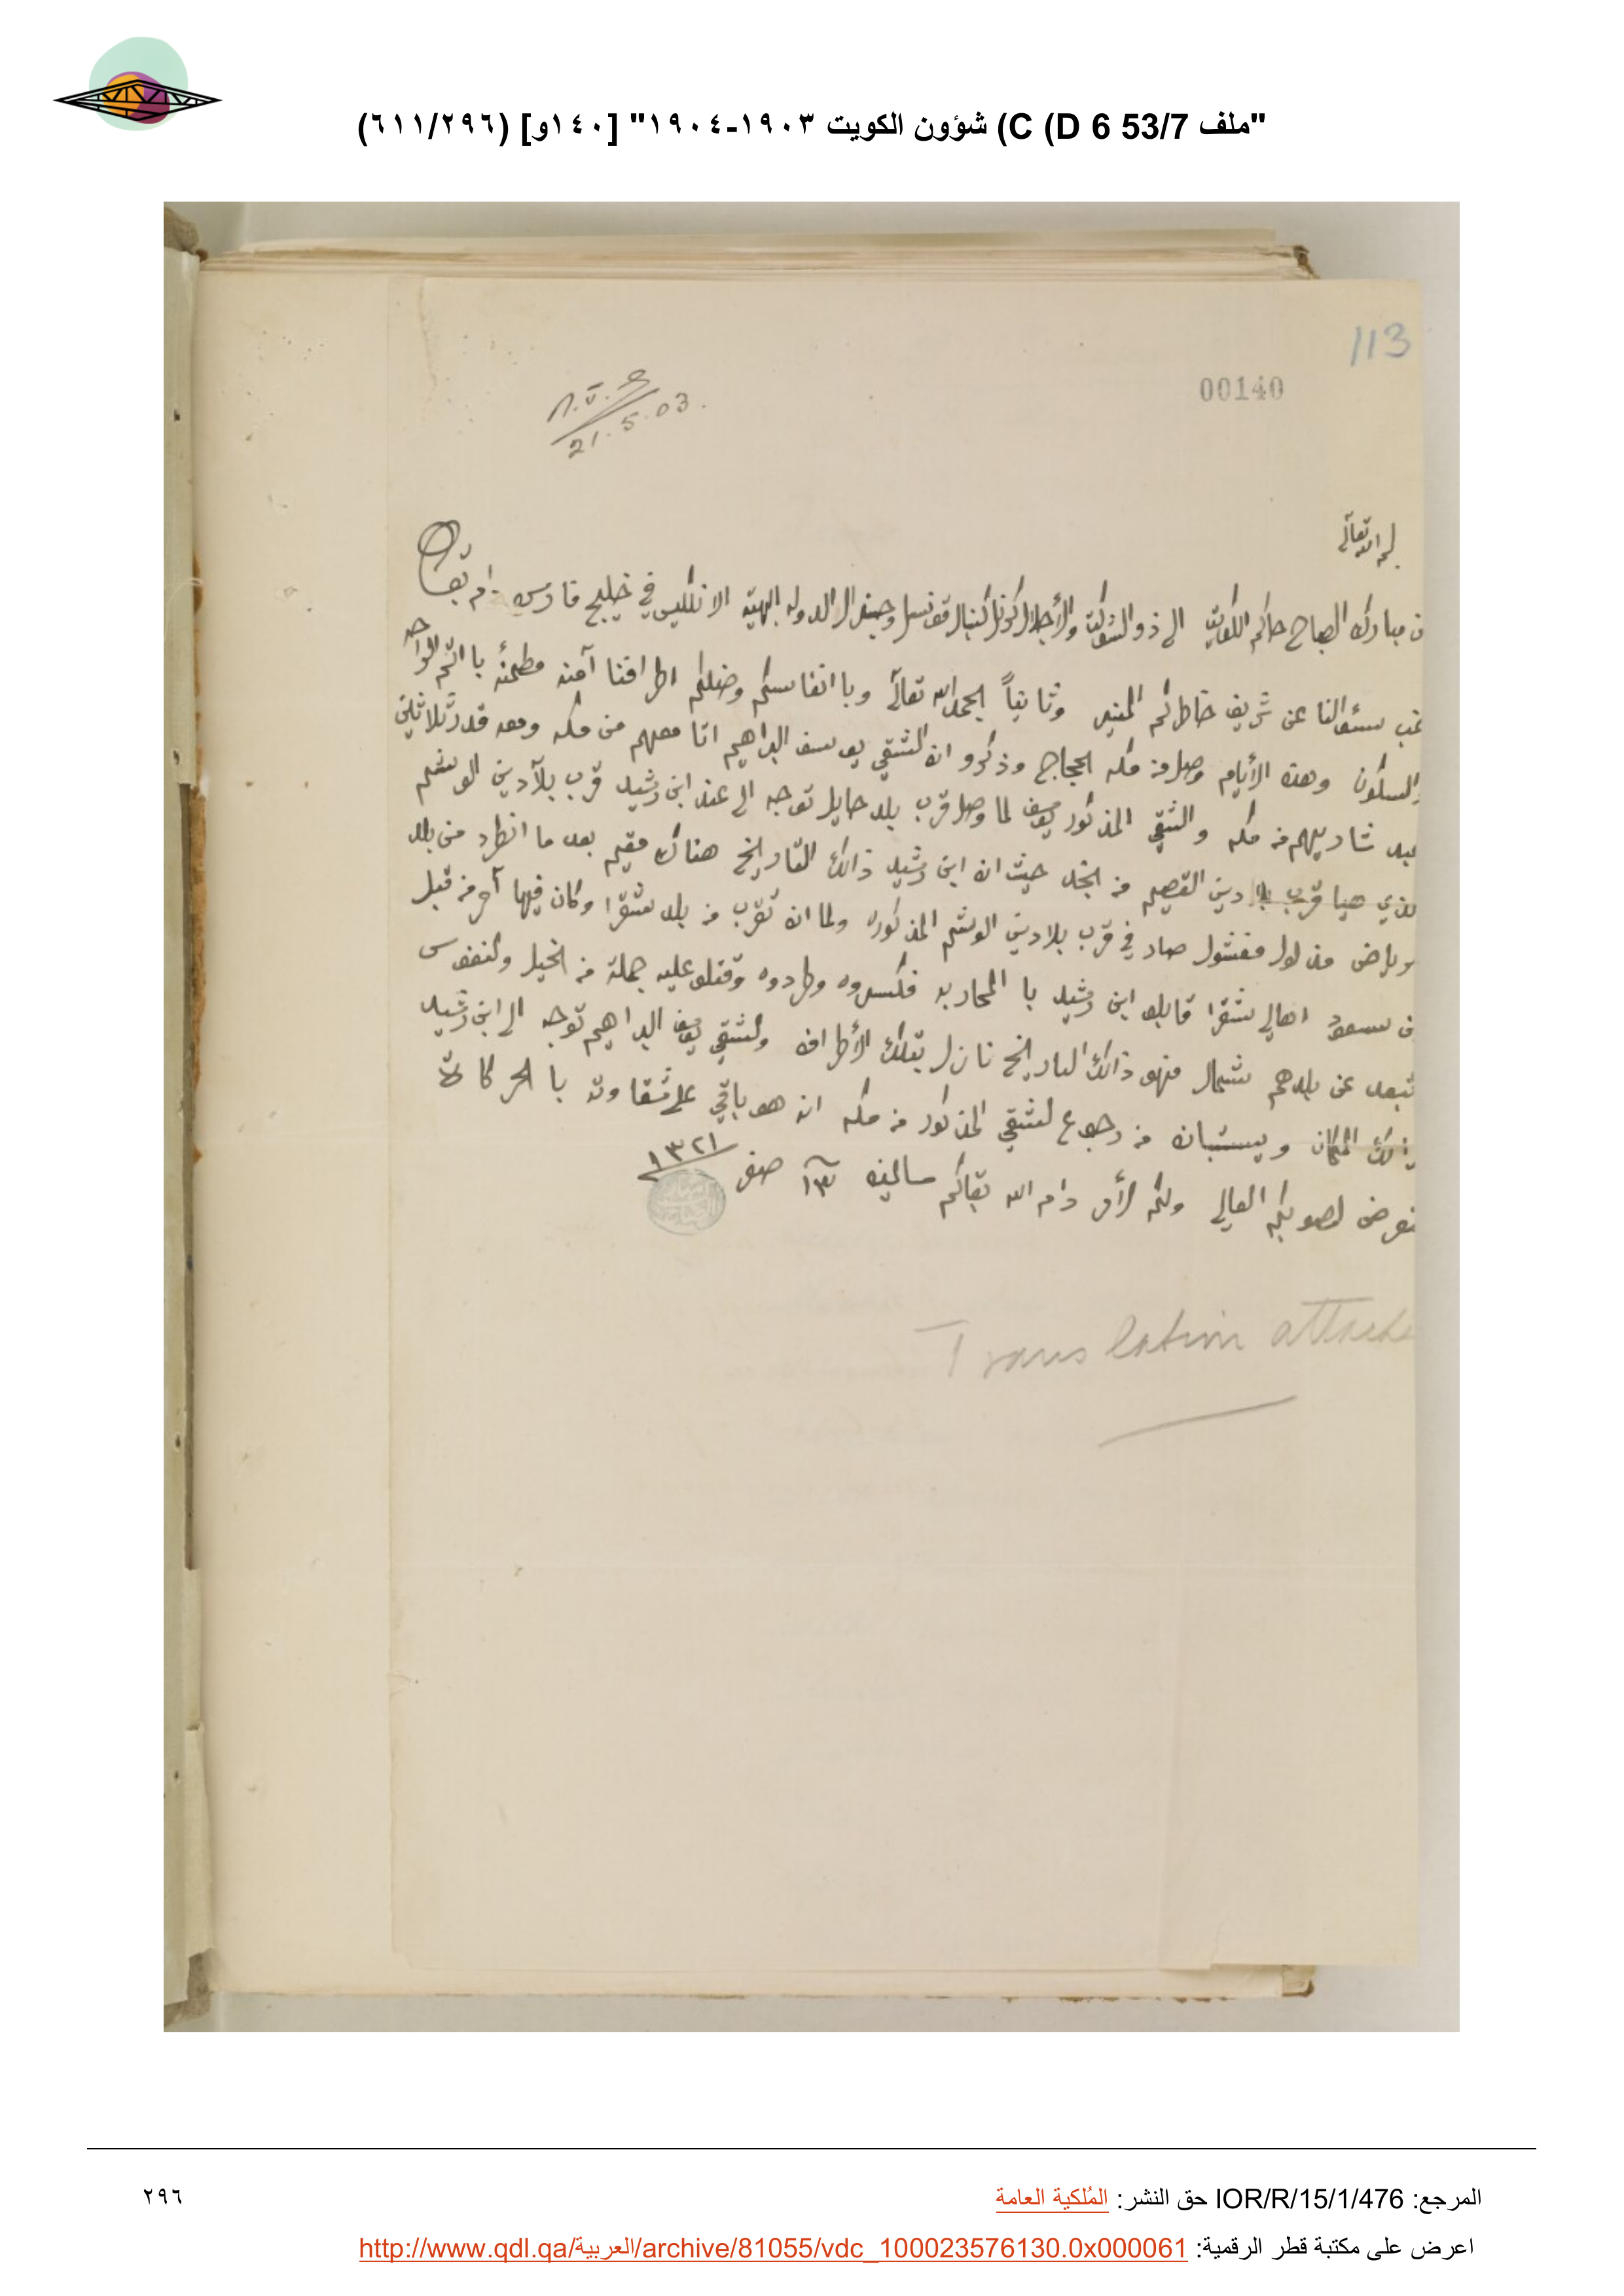 "ملف 53/7 D 6) C) شؤون الكويت ١٩٠٣-١٩٠٤" [١٤٠و] (٦١١/٢٩٦)
113
00140
21.5.03.
لله تعالى
من مبارك الصباح حاكم الكويت الى ذو الشوكت والأجلال كرنل كنبال قونسل وجنرال الدوله البهية الانكليس في خليج فارس دام بقاه
غب سئوالنا عن شريف خاطركم المنير وثانياً الحمد لله تعالى وبا انفاسكم وضلكم اطرافنا آمنه مطمئنه با اتم الراحه
والسكون وهذه الأيام وصل من مكه الحجاج وذكرو ان الشقي يوسف البراهيم اتا معهم من مكه ومعه قدر ثلاثين
عبد شاريهم من مكه والشقي المذكور يوسف لما وصل قرب بلد حايل توجه الى عند ابن رشيد قرب بلادين الوشم
الذي هيا قرب بلادين القصيم من نجد حيث ان ابن رشيد ذالك التاريخ هناك مقيم بعد ما انطرد من بلد
الرياض مفشول صار في قرب بلادين الوشم المذكوره ولما ان تقرب من بلد شقرا وكان فيها من قبل
بن سعود اهالي شقرا قابلو ابن رشيد با المحاربه فكسروه وطردوه وقتلو عليه جملة من الخيل ولنفوس
تبعد عن بلدهم شمال فهو ذالك التاريخ نازل بتلك الأطراف ولشقي يوسف البراهيم توجه الى ابن رشيد
بذلك المكان ويستبان من رجوع لشقي المذكور من مكه انه هو باقي على شقاوته با الحركات
نعرض لصوبكم العالي ولكم الأمر دام الله بقاكم سالمين ١٣ صفر ١٣٢١
Translation attache
المرجع: IOR/R/15/1/476 حق النشر: المُلكية العامة
٢٩٦
اعرض على مكتبة قطر الرقمية: http://www.qdl.qa/العربية/archive/81055/vdc_100023576130.0x000061